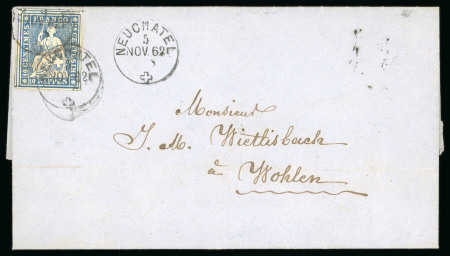 FRANCO
10 CENTIMES
10 RAPPEN
NEUCHATEL
5
NOV. 62
Monsieur
J. M. Wietlisbach
à Wohlen